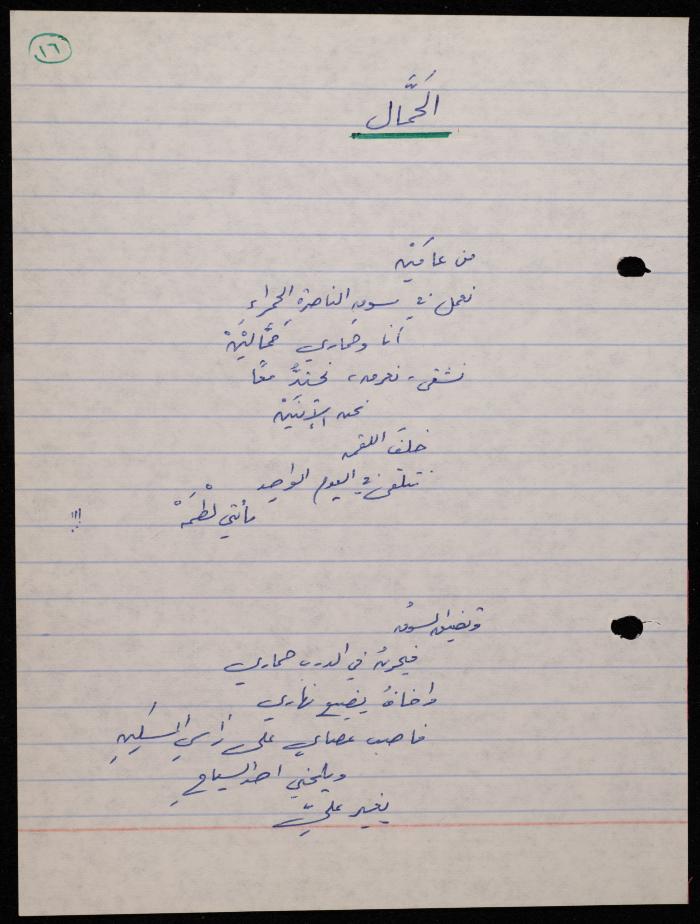 ١٦
الحَمَّال
من عامَيْن
نعمل في سوق الناصرة الحمراء
أنا وحماري حَمَّالَيْنْ
نشقى، نعرق، نحتدُّ معًا
نحن الإثنَيْنْ
خلفَ اللقمه
نتلقى في اليوم الواحِدِ
مأتي لَطْمَهْ !!!
ويضيق السوقُ
فيحرنُ في الدرب حماري
وأخافُ يضيع نهاري
فأصب عصاي على رأسِ المسكينِ
ويلمحني أحد السياحِ
يغير عليّ